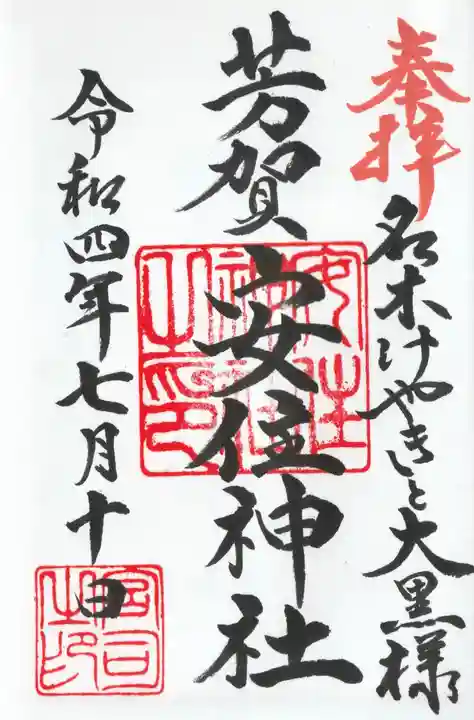 奉拝
名木けやきと大黒様
芳賀安住神社
安住
神社
之印
令和四年七月十日
宮司
之印